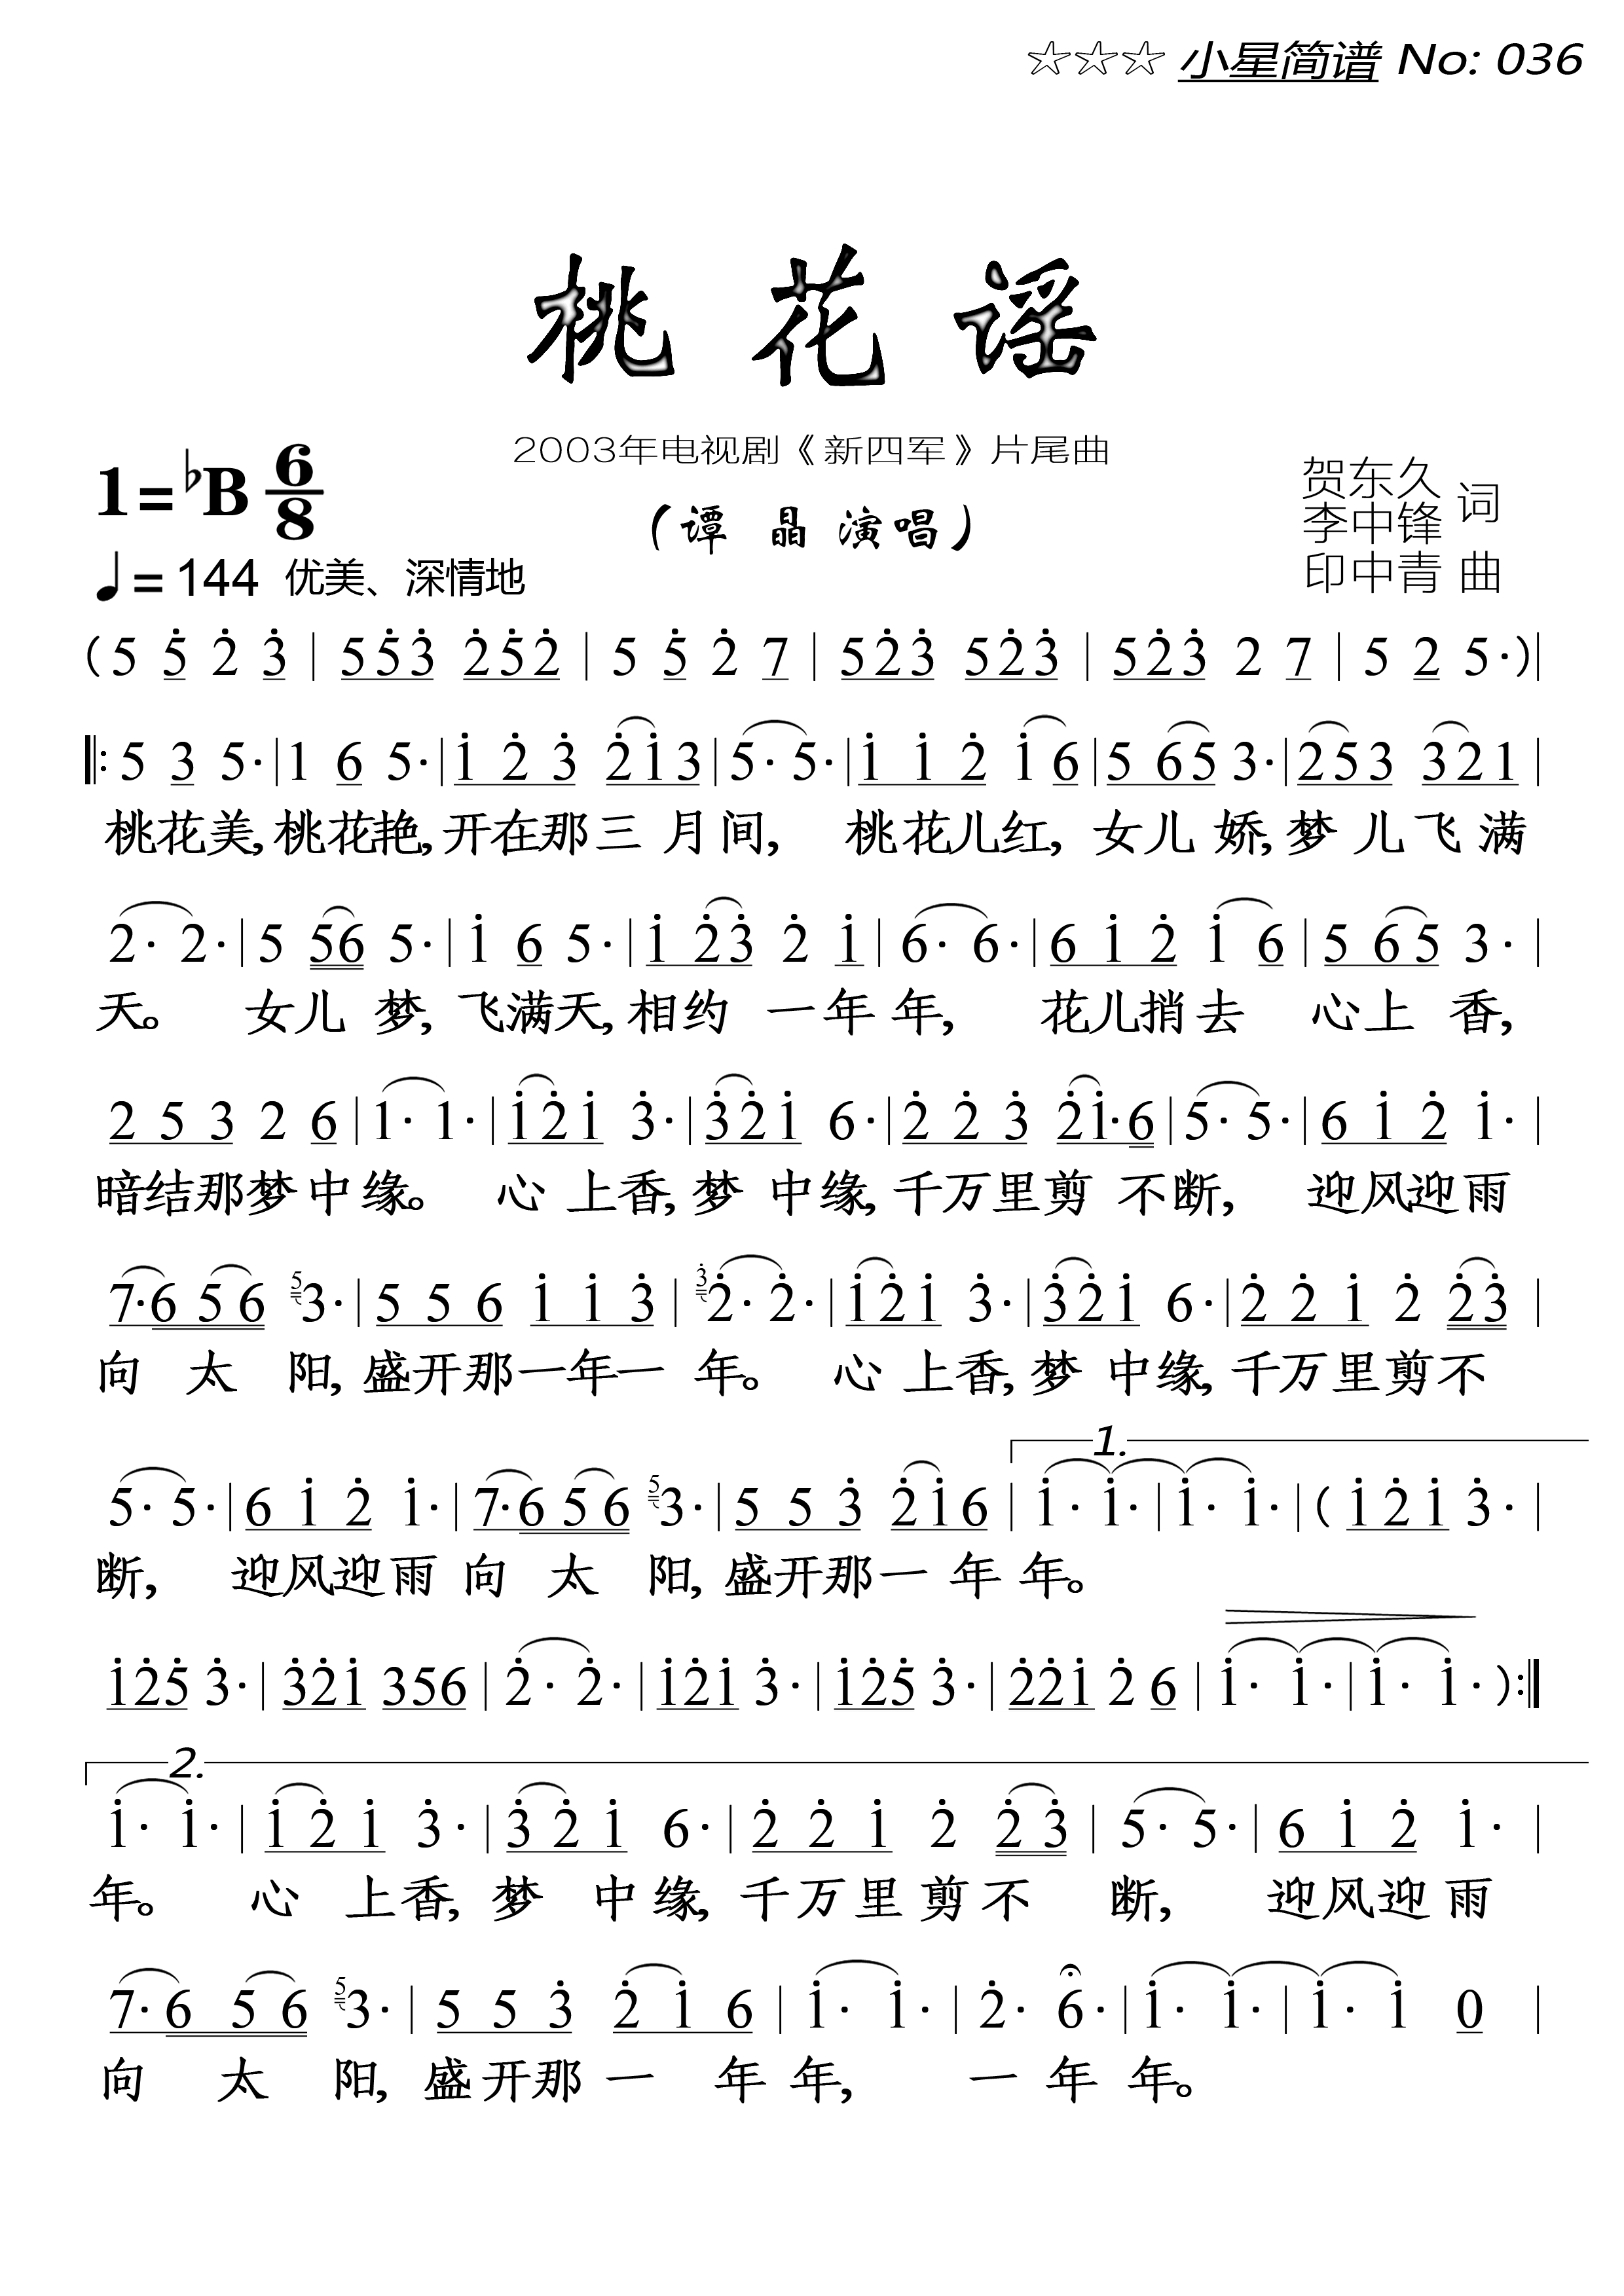 ☆☆☆ 小星简谱 No: 036
桃 花 谣
2003年电视剧《新四军》片尾曲
1=♭B 6/8
(谭 晶 演唱)
贺东久
李中锋 词
印中青 曲
♩=144 优美、深情地
(5 5̇ 2̇ 3̇ | 5 5̇ 3̇ 2̇ 5̇ 2̇ | 5 5̇ 2̇ 7 | 5 2̇ 3̇ 5 2̇ 3̇ | 5 2̇ 3̇ 2 7 | 5 2 5·) |
‖: 5 3 5· | 1 6 5· | 1̇ 2̇ 3̇ 2̇ 1̇ 3 | 5· 5· | 1̇ 1̇ 2̇ 1̇ 6 | 5 6 5 3· | 2 5 3 3 2 1 |
桃花美,桃花艳,开在那三 月间, 桃花儿红, 女儿 娇,梦 儿飞 满
2· 2· | 5 56 5· | 1̇ 6 5· | 1̇ 2̇ 3̇ 2̇ 1̇ | 6· 6· | 6 1̇ 2̇ 1̇ 6 | 5 6 5 3· |
天。 女儿 梦, 飞满天,相约 一年 年, 花儿捎去 心上 香,
2 5 3 2 6 | 1· 1· | 1̇ 2̇ 1̇ 3̇· | 3̇ 2̇ 1̇ 6· | 2̇ 2̇ 3̇ 2̇ 1̇· 6 | 5· 5· | 6 1̇ 2̇ 1̇· |
暗结那梦中缘。 心 上香,梦 中缘,千万里剪 不断, 迎风迎雨
7· 6 5 6 5 3· | 5 5 6 1̇ 1̇ 3̇ | 3̇ 2̇· 2̇· | 1̇ 2̇ 1̇ 3̇· | 3̇ 2̇ 1̇ 6· | 2̇ 2̇ 1̇ 2̇ 2̇ 3̇ |
向 太 阳,盛开那一年一 年。 心 上香,梦 中缘,千万里剪不
1.
5· 5· | 6 1̇ 2̇ 1̇· | 7· 6 5 6 5 3· | 5 5 3̇ 2̇ 1̇ 6 | 1̇· 1̇· | 1̇· 1̇· | (1̇ 2̇ 1̇ 3̇· |
断, 迎风迎雨 向 太 阳,盛开那一 年 年。
1̇ 2̇ 5̇ 3̇· | 3̇ 2̇ 1̇ 3 5 6 | 2̇· 2̇· | 1̇ 2̇ 1̇ 3̇· | 1̇ 2̇ 5̇ 3̇· | 2̇ 2̇ 1̇ 2̇ 6 | 1̇· 1̇· | 1̇· 1̇·) :‖
2.
1̇· 1̇· | 1̇ 2̇ 1̇ 3̇· | 3̇ 2̇ 1̇ 6· | 2̇ 2̇ 1̇ 2̇ 2̇ 3̇ | 5· 5· | 6 1̇ 2̇ 1̇· |
年。 心 上香, 梦 中缘, 千万里剪不 断, 迎风迎雨
7· 6 5 6 5 3· | 5 5 3̇ 2̇ 1̇ 6 | 1̇· 1̇· | 2̇· 6· | 1̇· 1̇· | 1̇· 1̇ 0 |
向 太 阳, 盛开那 一 年 年, 一 年 年。